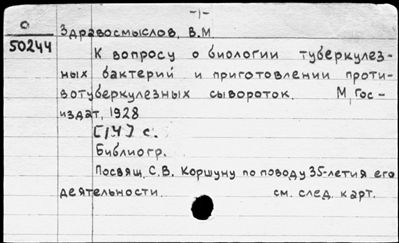 -1-
О
50244
Здравосмыслов, В.М.
К вопросу о биологии туберкулез-
ных бактерий и приготовлении проти-
вотуберкулезных сывороток. М, Гос-
издат, 1928
[14] с.
Библиогр.
Посвящ. С.В. Коршуну по поводу 35-летия его
деятельности. см. след. карт.